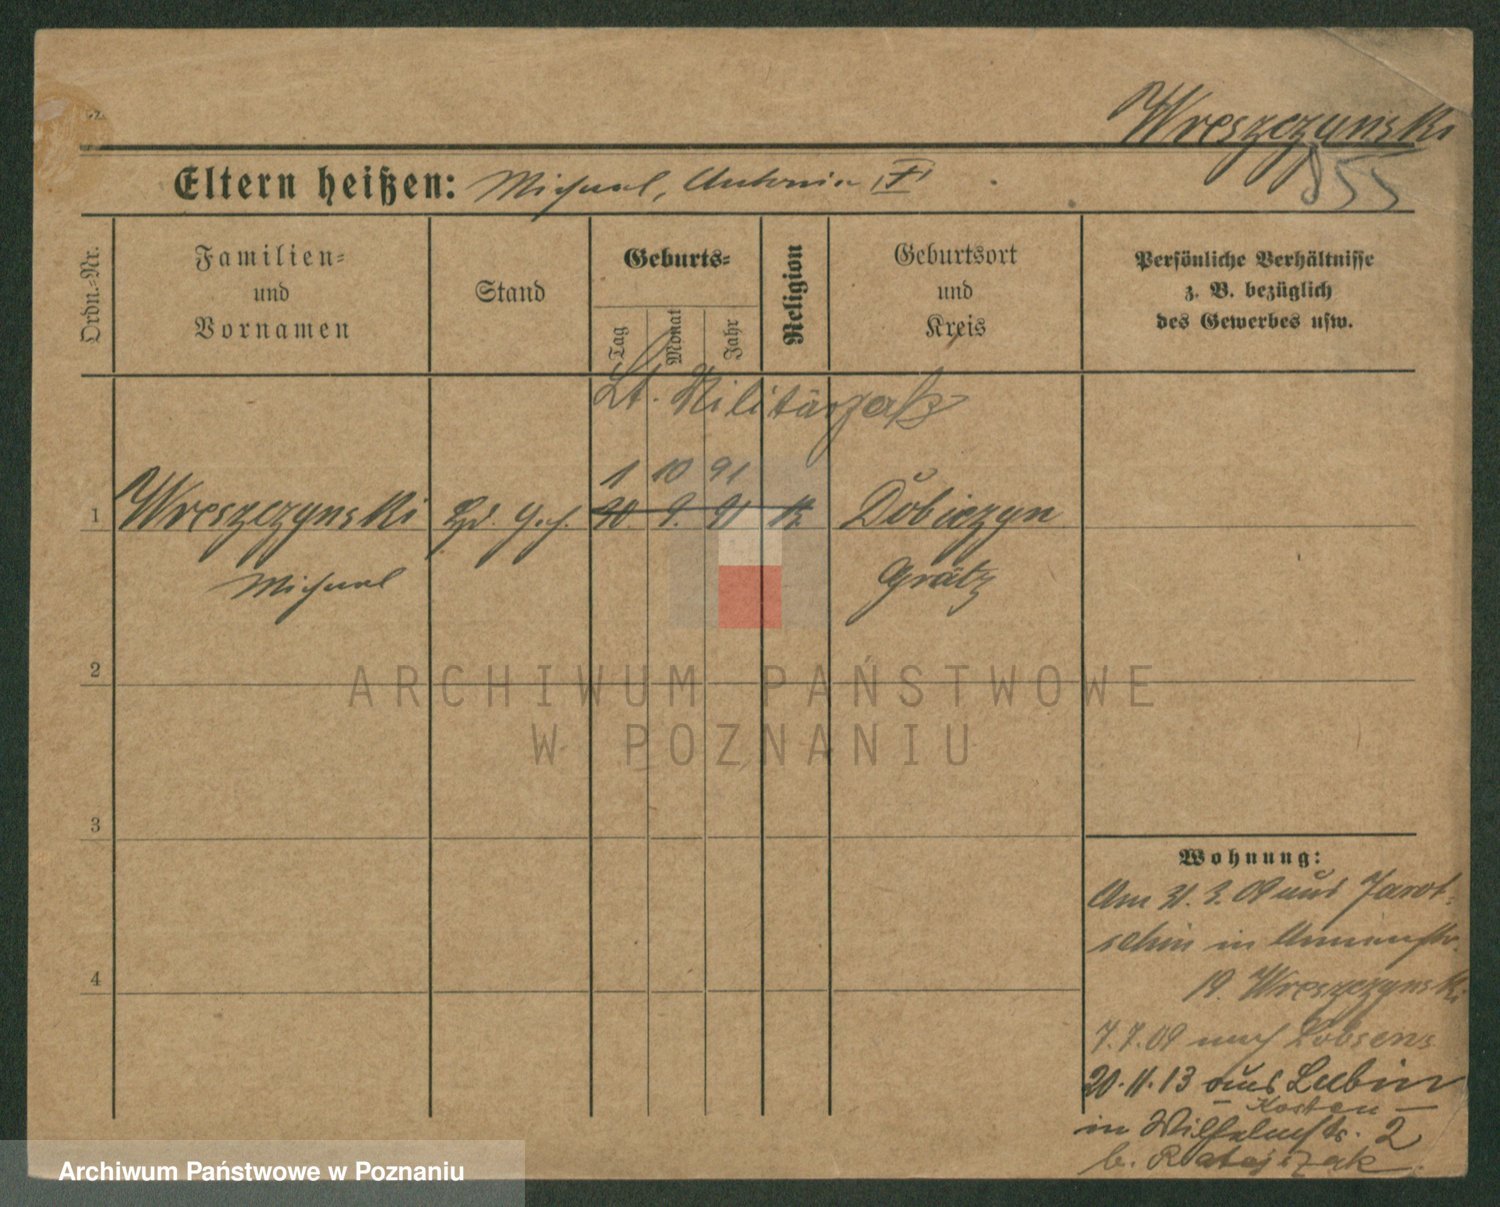 Wreszczynski
855
Eltern heißen: Michael, Antonia (†)
Ordn.-Nr.
Familien-
und
Vornamen
Stand
Geburts-
Tag
Monat
Jahr
Religion
Geburtsort
und
Kreis
Persönliche Verhältnisse
z. B. bezüglich
des Gewerbes usw.
Lt. Militärpaß
1 10 91
1 Wreszczynski 9. 91 k. Dobiezyn
Michael Grätz
2
ARCHIWUM PAŃSTWOWE
W POZNANIU
3
4
Wohnung:
Am 31. 3. 09 aus Jarot-
schin in
19. Wreszczynski
7.7.09 nach Lobsens
20.11.13 aus Lubin
– Kosten –
in Wilhelmstr. 2
b. Ratajczak
Archiwum Państwowe w Poznaniu